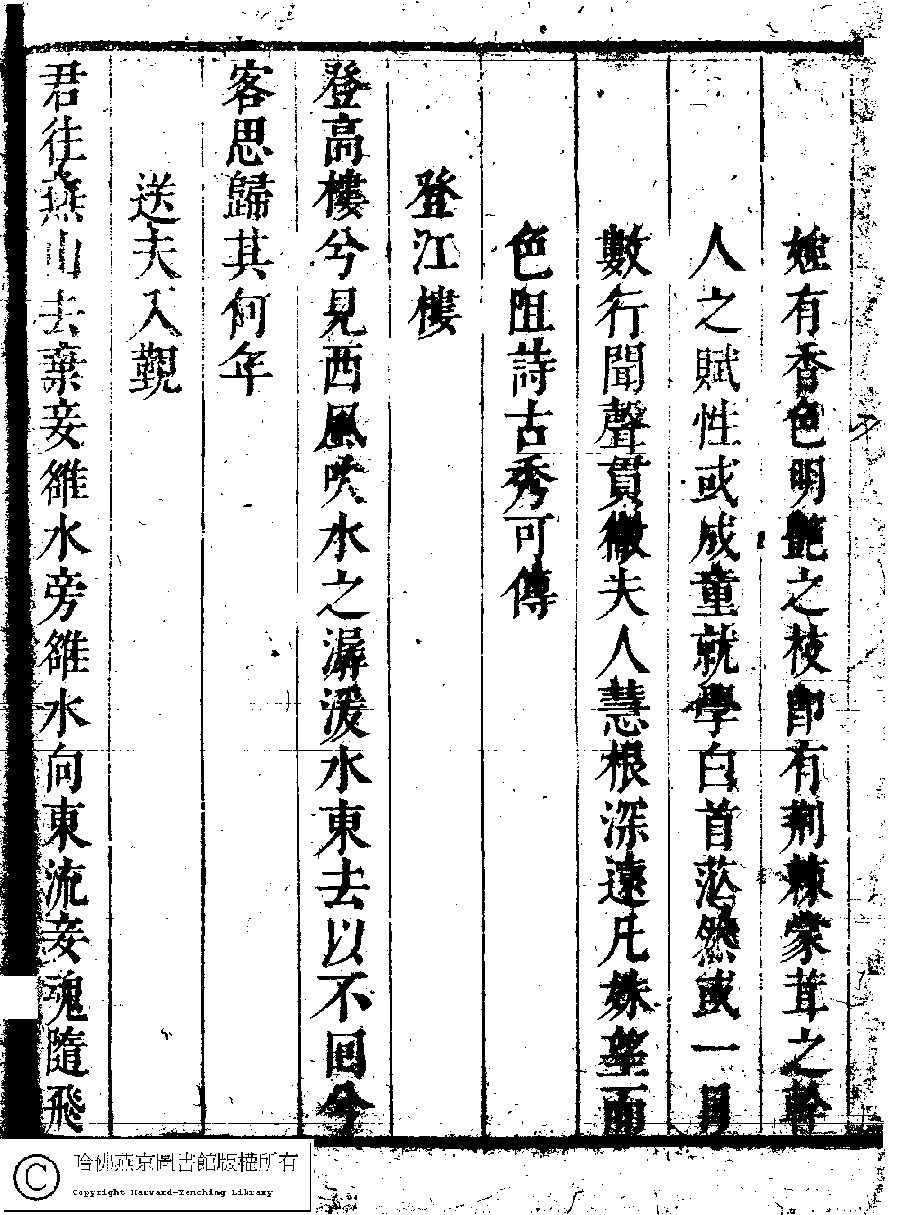 婬有香色明艷之枝即有荆棘蒙茸之幹
人之賦性或成童就學白首茫然或一目
數行聞聲貫徹夫人慧根深遠凡姝望而
色阻詩古秀可傳
登江樓
登高樓兮見西風吹水之潺湲水東去以不回兮
客思歸其何年
送夫入覲
君往燕山去棄妾雒水旁雒水向東流妾魂隨飛
哈佛燕京圖書館版權所有
Copyright Harvard-Yenching Library